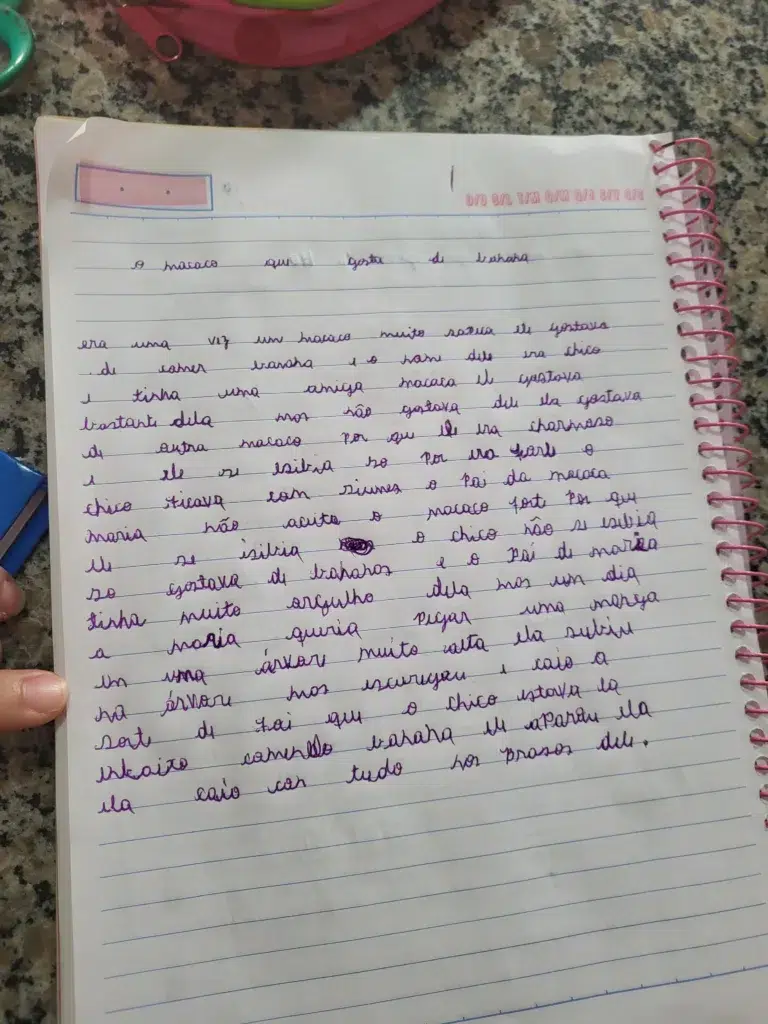 D/D S/S T/M Q/W Q/T S/V S/S
o macaco que gosta de banana
era uma vez um macaco muito sapeca ele gostava
de comer banana e o nome dele era chico
e tinha uma amiga macaca ele gostava
bastante dela mos não gostava dele ela gostava
de outro macaco por que ele era charmoso
e ele se esibia so por era forte o
chico ficava com siumes o pai da macaca
maria não aceita o macaco forte por que
ele se isibia o chico não se esibia
so gostava de bananos e o pai de maria
tinha muito orgulho dela mos um dia
a maria queria pegar uma manga
en uma árvore muito alta ela subiu
na árvore mos escuregou e caio a
sorte de foi que o chico estava la
enbaixo comendo banana ele aparou ela
ela caio con tudo nos brasos dele.